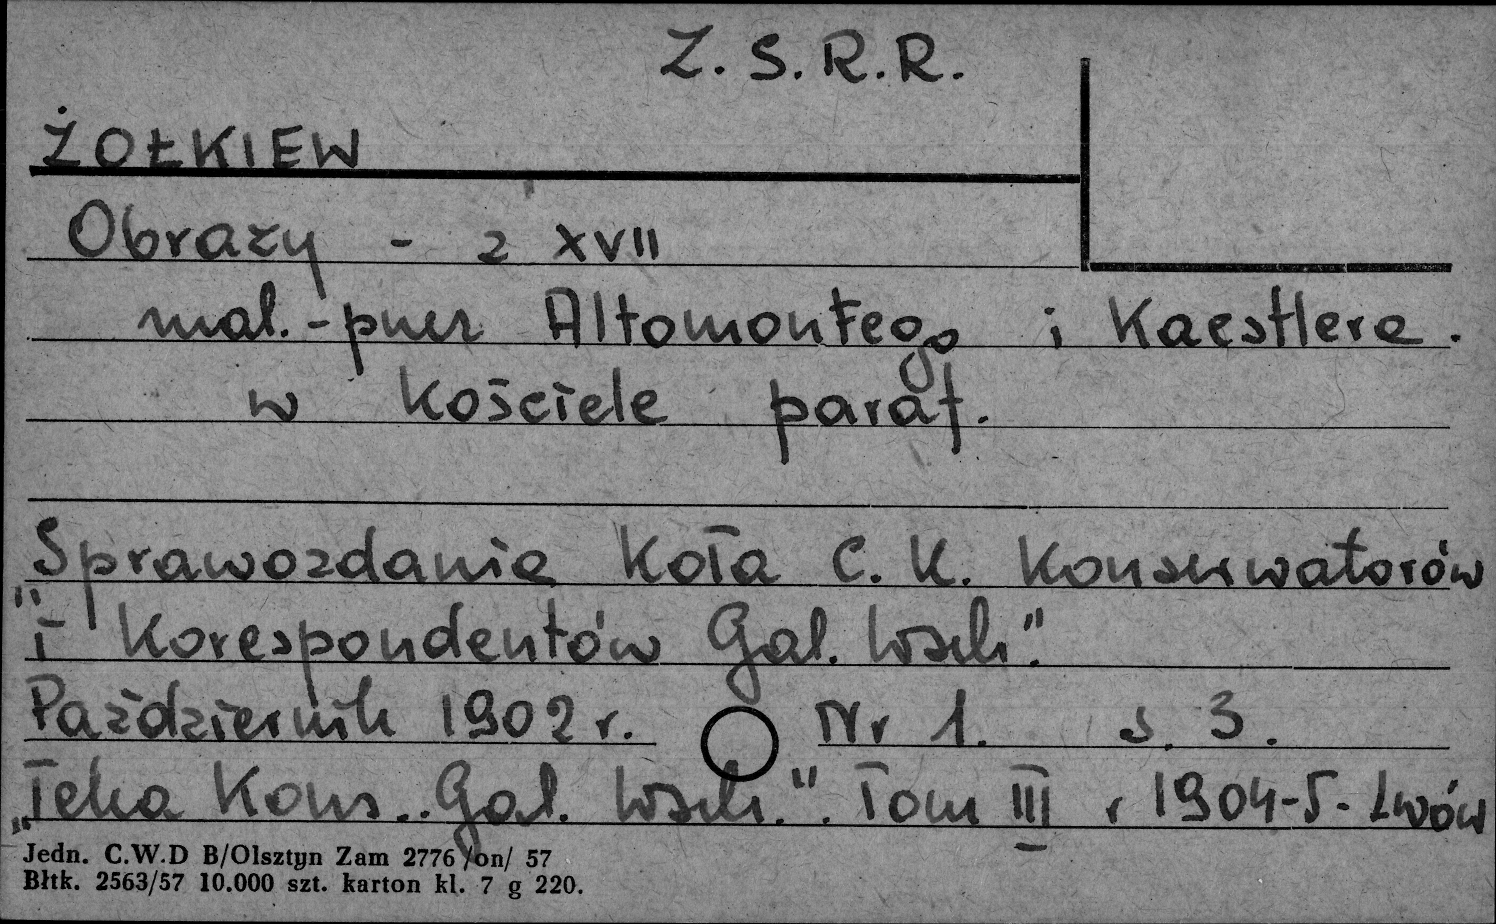 Z. S. R. R.
ŻOŁKIEW
Obrazy - z XVII
mal. - przez Altomontego i Kaestlera.
w kościele paraf.
„Sprawozdania Koła C. K. Konserwatorów
i Korespondentów Gal. Wsch."
Październik 1902 r. Nr 1. s. 3.
„Teka Kons.. Gal. Wsch.". Tom III r 1904-5- Lwów
Jedn. C.W.D B/Olsztyn Zam 2776 /on/ 57
Błtk. 2563/57 10.000 szt. karton kl. 7 g 220.